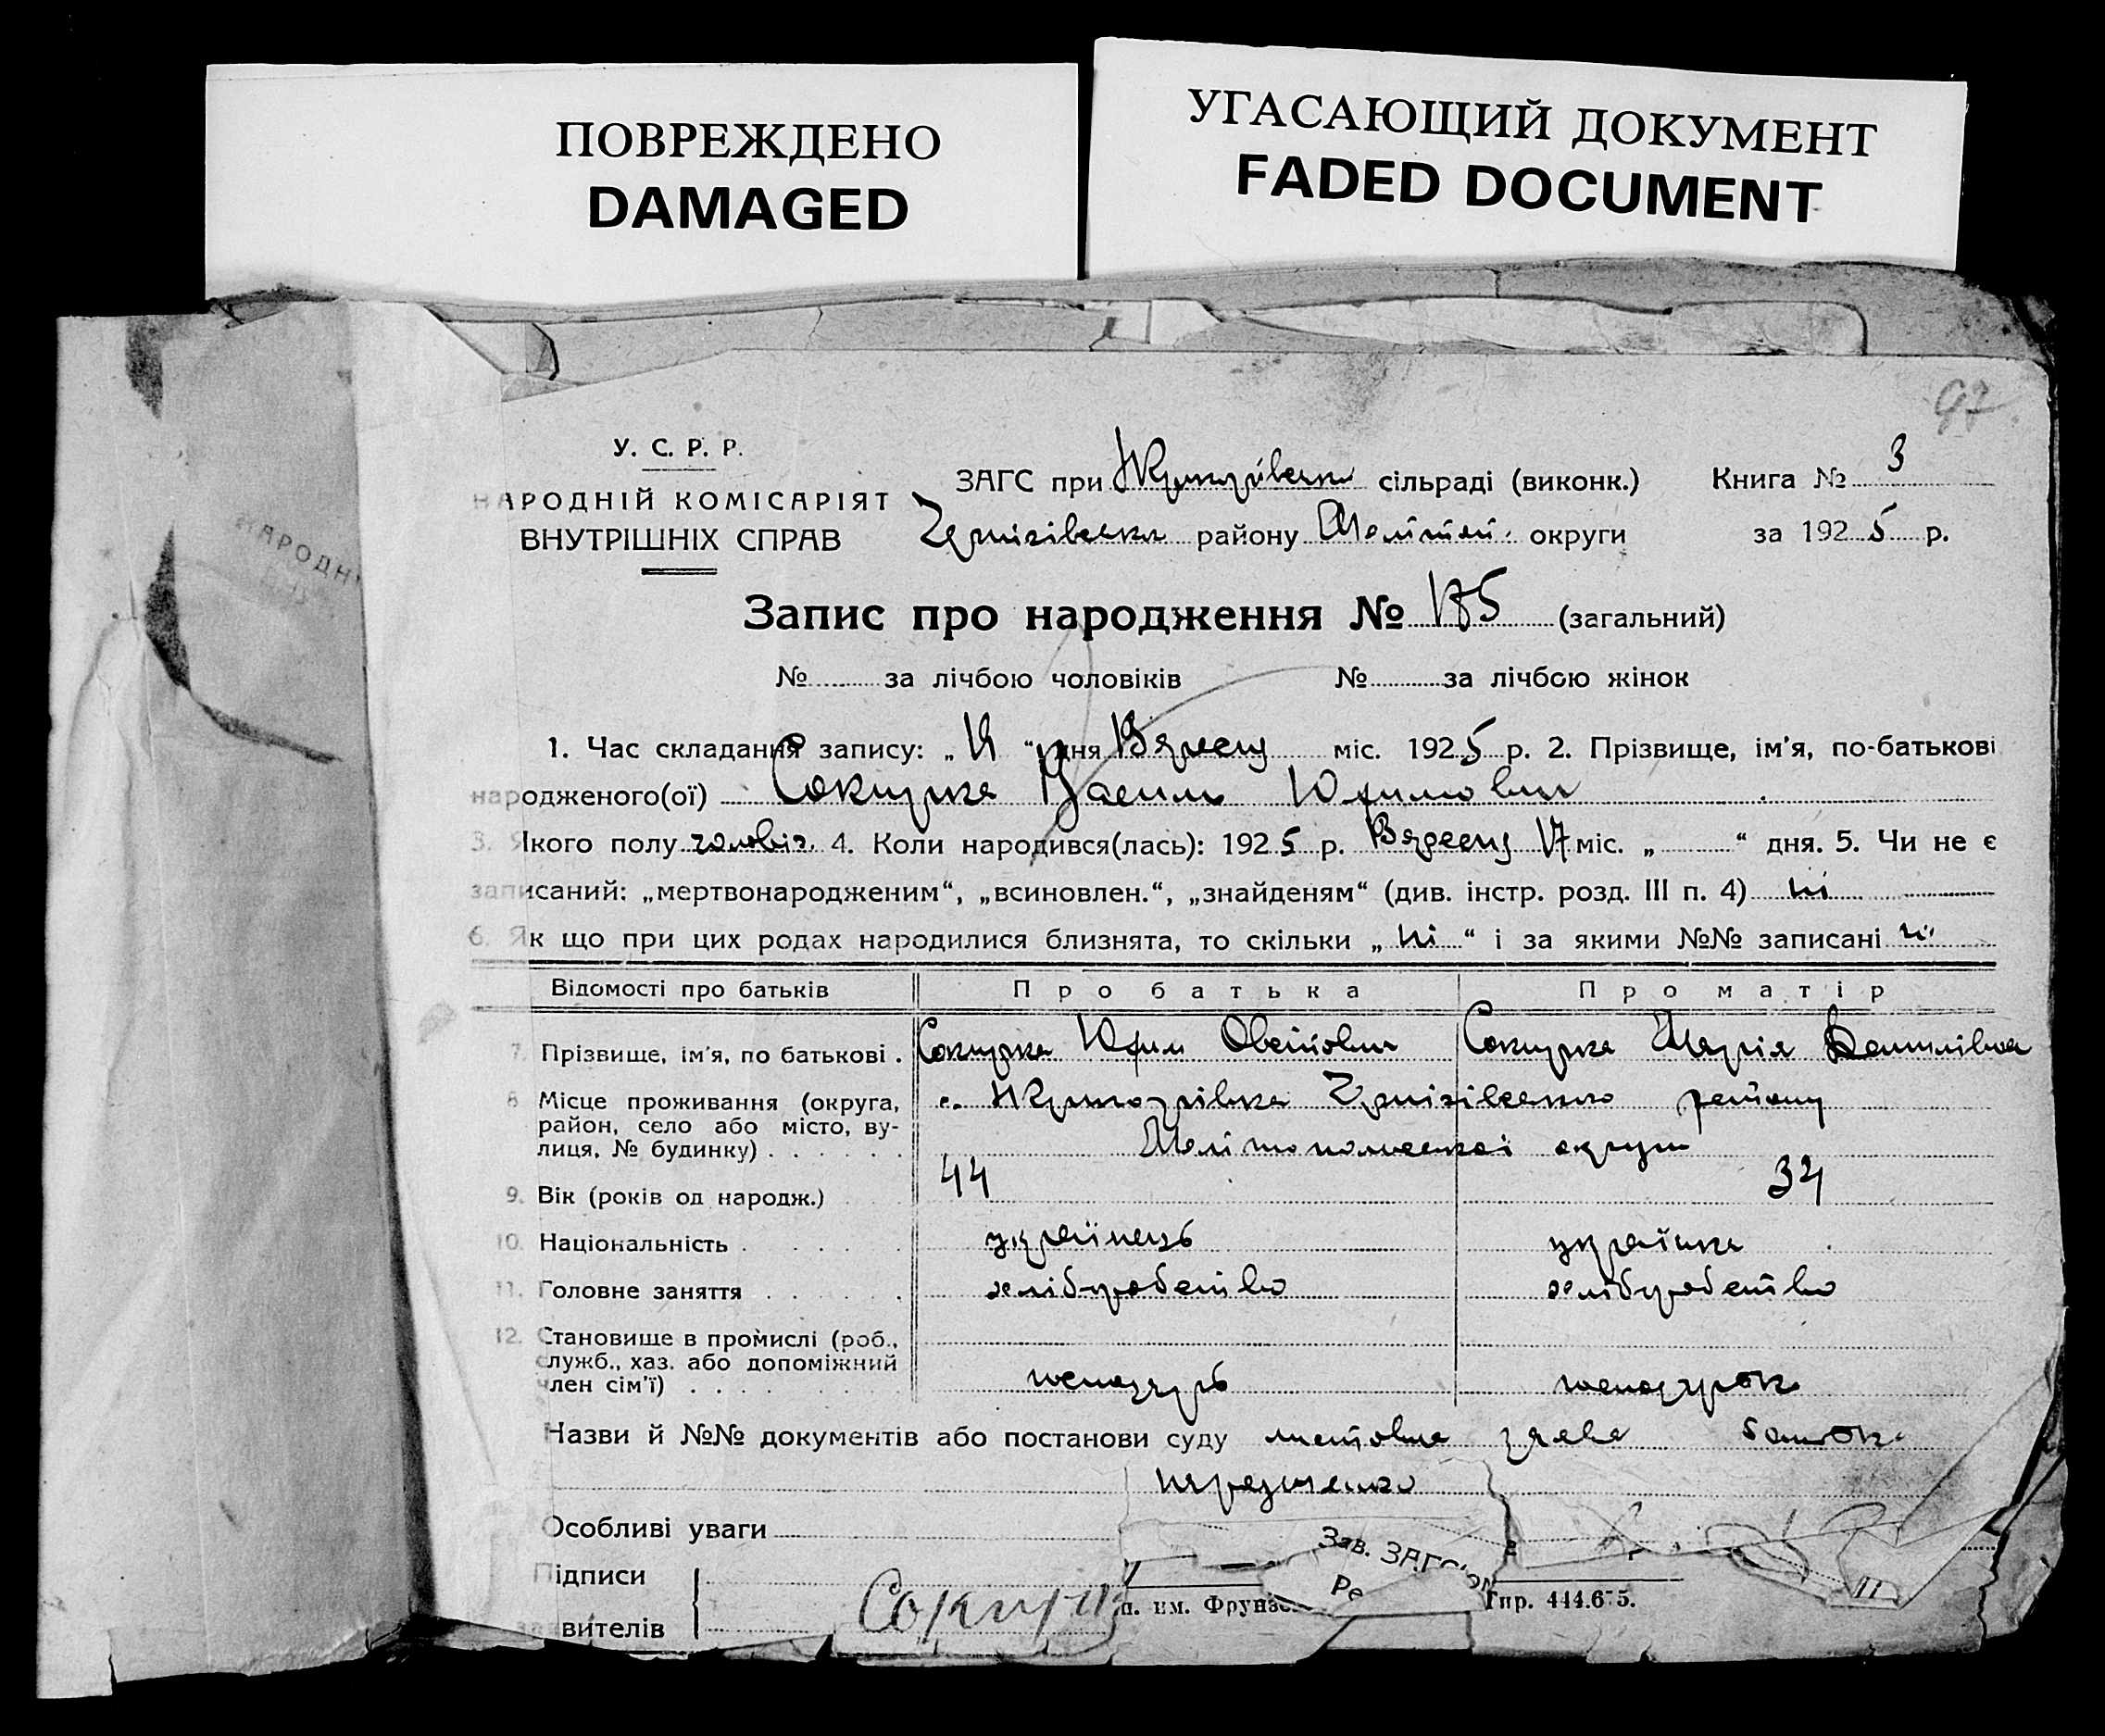 ПОВРЕЖДЕНО
DAMAGED
УГАСАЮЩИЙ ДОКУМЕНТ
FADED DOCUMENT
97
У. С. Р. Р.
НАРОДНІЙ КОМІСАРІЯТ
ВНУТРІШНІХ СПРАВ
НАРОДН
ЗАГС при сільраді (виконк.) Книга № 3
Чернігівськ району Меліт. округи за 1925 р.
Запис про народження № (загальний)
№ за лічбою чоловіків № за лічбою жінок
1. Час складання запису: „ “ дня Вересня міс. 1925 р. 2. Прізвище, ім'я, по-батькові
народженого(ої) Сокирка Василь Юхимович
3. Якого полу чоловіч. 4. Коли народився(лась): 1925 р. Вересня 17 міс. „ “ дня. 5. Чи не є
записаний: „мертвонародженим“, „всиновлен.“, „знайденям“ (див. інстр. розд. III п. 4) ні
6. Як що при цих родах народилися близнята, то скільки „ ні “ і за якими №№ записані ні
Відомості про батьків Про батька Про матір
7. Прізвище, ім'я, по батькові . Сокирка Юхим Сокирка Марія
8 Місце проживання (округа,
район, село або місто, ву-
лиця, № будинку) . . . . . .
с. Чернігівського району
Мелітопольської округи
9. Вік (років од народж.) 44 34
10. Національність . українець українка
11. Головне заняття . хліборобство хліборобство
12. Становище в промислі (роб.,
служб., хаз. або допоміжний
член сім'ї) . . . . господарь
Назви й №№ документів або постанови суду заява батька
Особливі уваги
Зав. ЗАГС'ом
Підписи
заявителів
Сокирк
п. им. Фрунзе
Гир. 444.675.